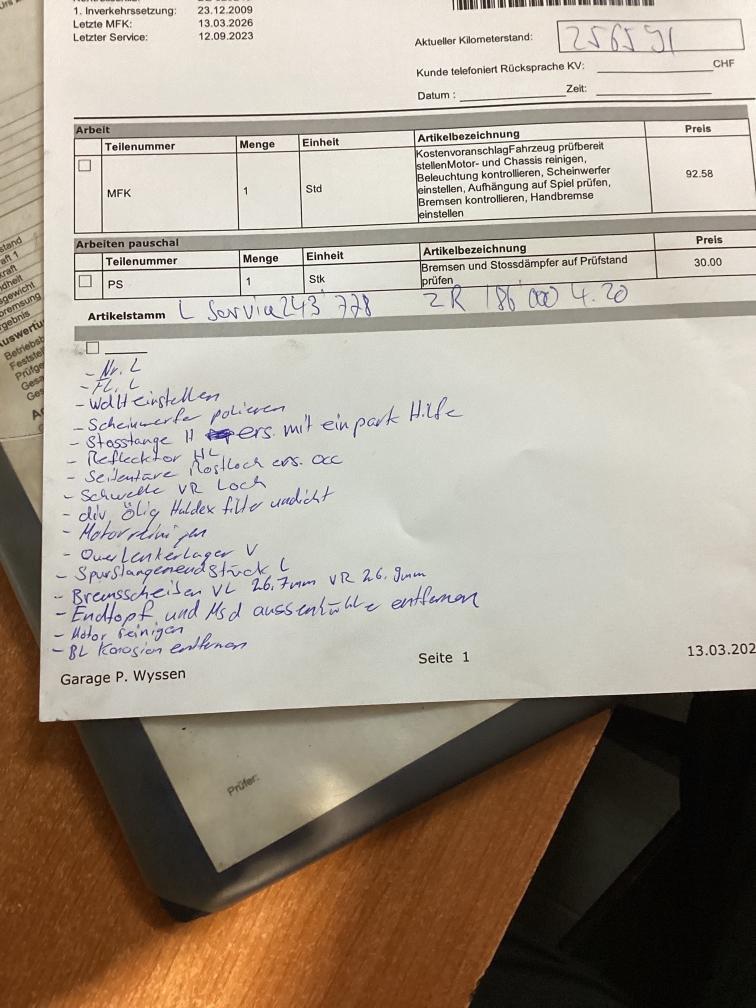 1. Inverkehrssetzung: 23.12.2009
Letzte MFK: 13.03.2026
Letzter Service: 12.09.2023
Aktueller Kilometerstand: 256591
Kunde telefoniert Rücksprache KV: CHF
Datum : Zeit:
Arbeit
Teilenummer Menge Einheit Artikelbezeichnung Preis
MFK 1 Std KostenvoranschlagFahrzeug prüfbereit
stellenMotor- und Chassis reinigen,
Beleuchtung kontrollieren, Scheinwerfer
einstellen, Aufhängung auf Spiel prüfen,
Bremsen kontrollieren, Handbremse
einstellen
92.58
Arbeiten pauschal
Teilenummer Menge Einheit Artikelbezeichnung Preis
PS 1 Stk Bremsen und Stossdämpfer auf Prüfstand
prüfen
30.00
Artikelstamm L Service 243'778 ZR 186'000 4.20
- Nr. L
- FL. L
- einstellen
- Scheinwerfer polieren
- Stosstange H ers. mit einpark Hilfe
- Reflecktor HL
- Seitentüre Rostloch ers. occ
- Schwelle VR Loch
- div ölig Haldex filter undicht
- Motor reinigen
- Querlenkerlager V
- Spurstangenendstück L
- Bremsscheiben VL 26.7mm VR 26.9mm
- Endtopf und Msd aussenhühle entfernen
- Motor reinigen
- BL Korosion entfernen
Garage P. Wyssen
Seite 1
13.03.202
Prüfer: